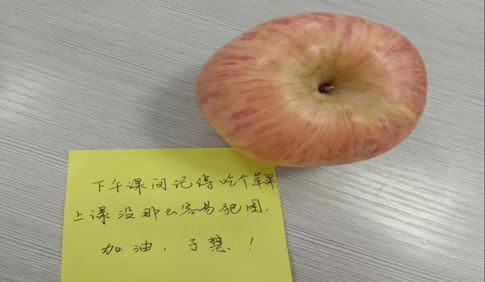 下午课间记得吃个苹果
上课没那么容易犯困.
加油，子慧！